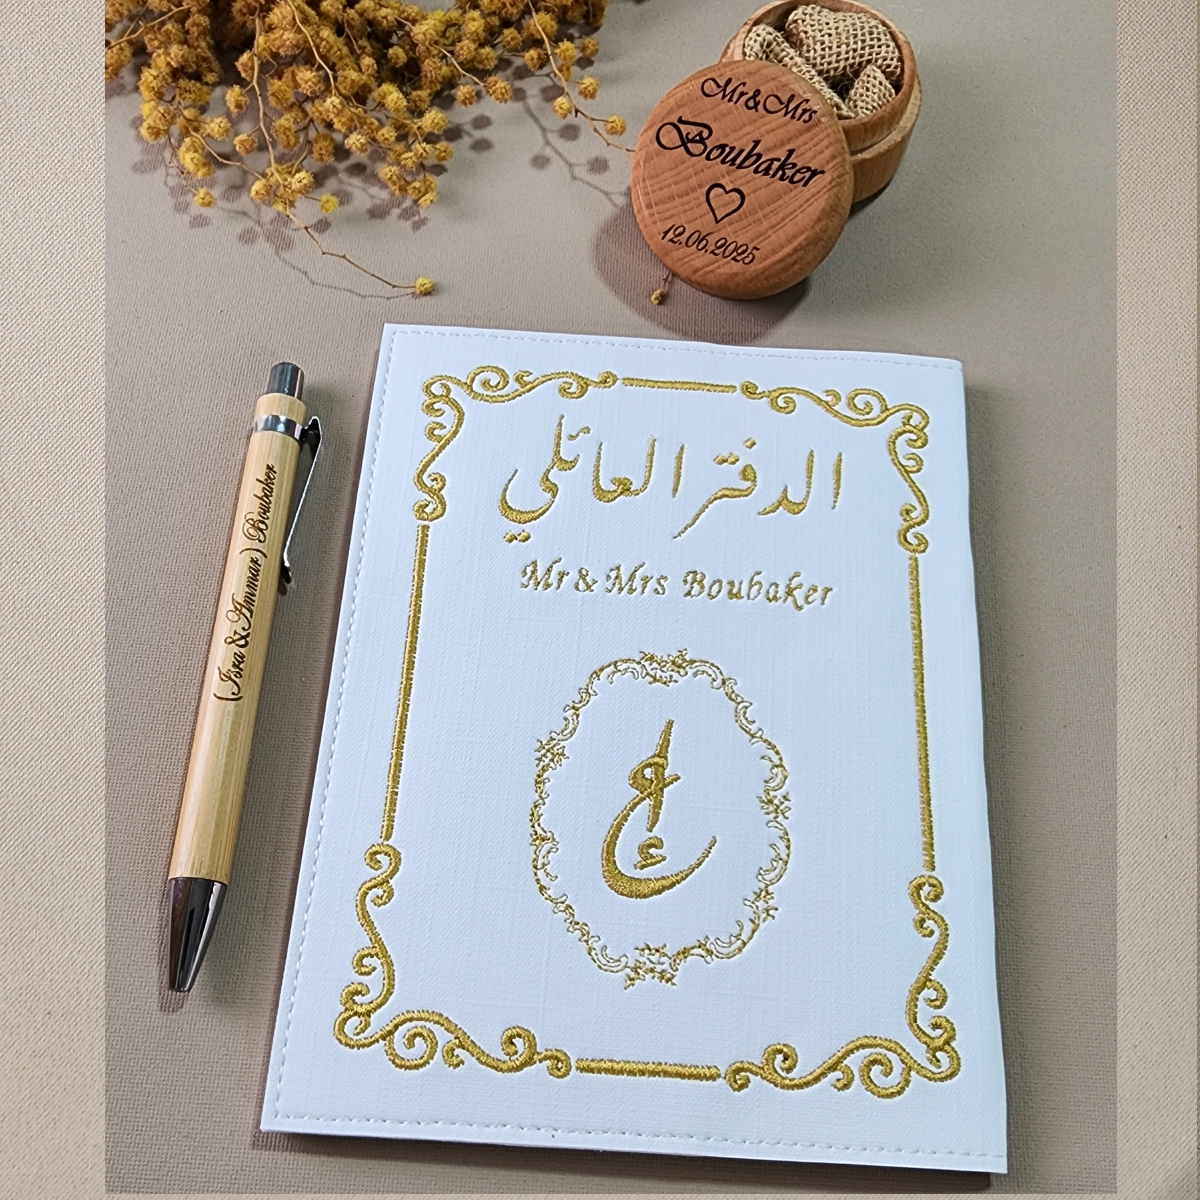 Mr&Mrs
Boubaker
12.06.2025
(Isra & Ammar) Boubaker
الدفتر العائلي
Mr & Mrs Boubaker